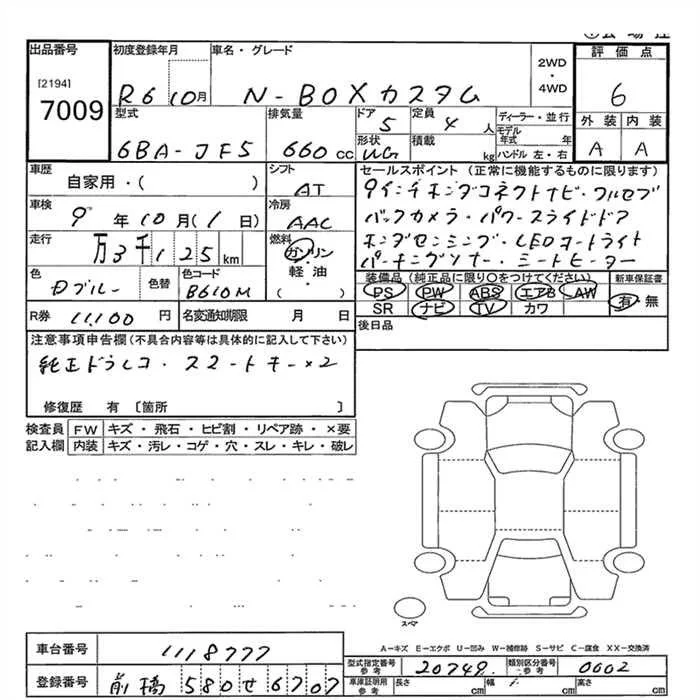 出品番号
[2194]
7009
初度登録年月
R6 10月
車名・グレード
N-BOXカスタム
2WD
・
4WD
評価点
6
外装 内装
A A
型式
6BA-JF5
排気量
660cc
ドア
5
形状
WG
定員
4人
積載
kg
ディーラー・並行
モデル年式 年
ハンドル 左・右
車歴
自家用・( )
シフト
AT
車検
9年10月(1日)
冷房
AAC
走行
万3千125km
燃料
ガソリン
軽油
・( )
色
Dブルー
色替
色コード
B610M
R券 11,100円
名変通知期限 月 日
セールスポイント(正常に機能するものに限ります)
9インチホンダコネクトナビ・フルセグ
バックカメラ・パワースライドドア
ホンダセンシング・LEDオートライト
パーキングソナー・シートヒーター
装備品(純正品に限り○をつけてください)
PS PW ABS エアB AW
SR ナビ TV カワ
新車保証書
有・無
後日品
注意事項申告欄(不具合内容等は具体的に記入して下さい)
純正ドラレコ・スマートキー×2
修復歴 有 〔箇所 〕
検査員 FW キズ・飛石・ヒビ割・リペア跡・×要
記入欄 内装 キズ・汚レ・コゲ・穴・スレ・キレ・破レ
スペア
A-キズ E-エクボ U-凹み W-補修跡 S-サビ C-腐食 XX-交換済
車台番号 1118777
登録番号 前橋580せ6707
型式指定番号 参考 20749
類別区分番号 参考 0002
車庫証明用 参考 長さ cm 幅 cm 高さ cm